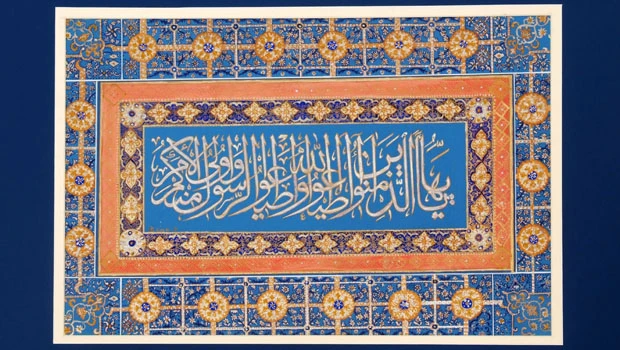 يا ايها الذين آمنوا اطيعوا الله واطيعوا الرسول واولى الامر منكم